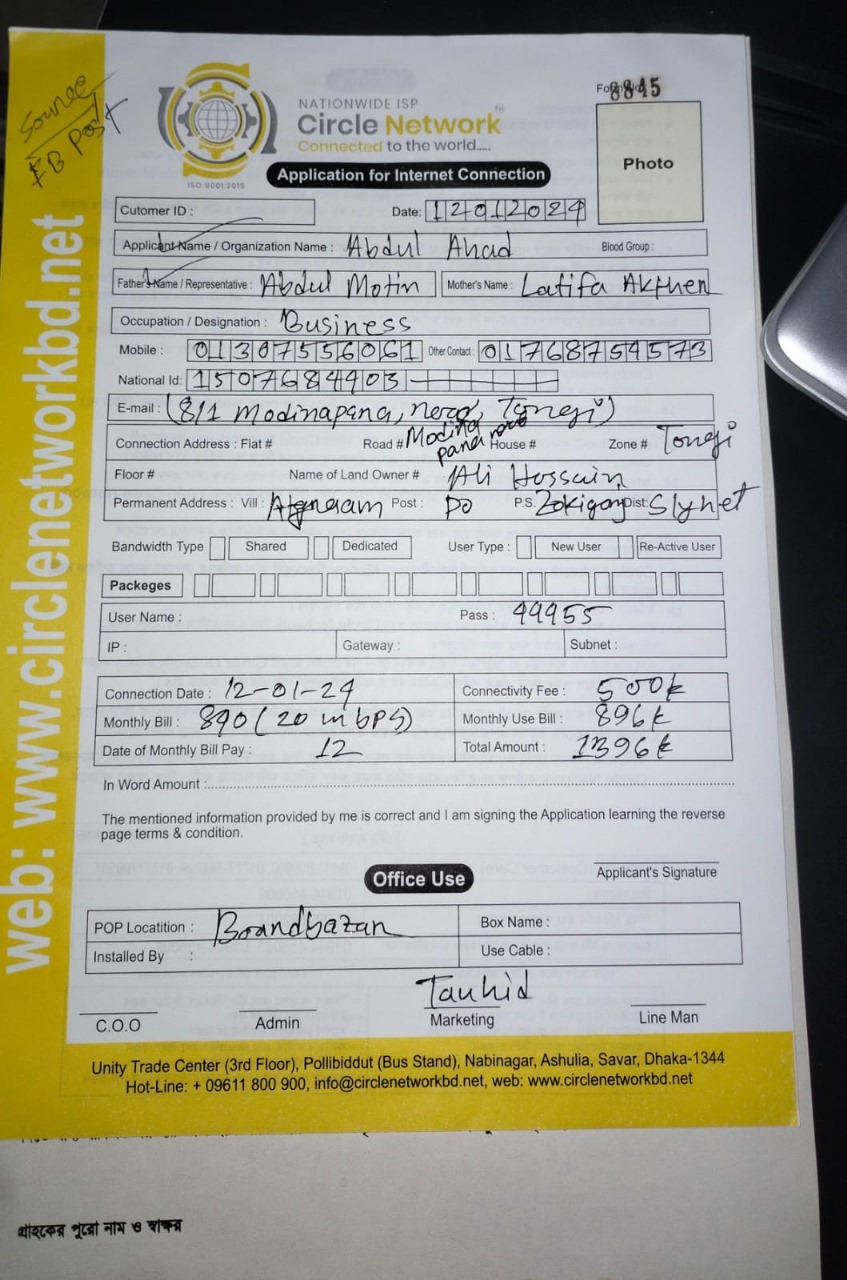 Source
FB Post
web: www.circlenetworkbd.net
NATIONWIDE ISP
Circle Network
Connected to the world.....
ISO 9001:2015
8845
Photo
Application for Internet Connection
Cutomer ID : Date: 12012024
Applicant Name / Organization Name : Abdul Ahad Blood Group :
Father's Name / Representative : Abdul Motin Mother's Name : Latifa Akther
Occupation / Designation : Business
Mobile : 01307556061 Other Contact : 01768754573
National Id: 1507684403
E-mail : (8/1 Modinapara, Tongi)
Connection Address : Flat # Road # Modina para road House # Zone # Tongi
Floor # Name of Land Owner # Ali Hossain
Permanent Address : Vill : Post : Do P.S. Zokigonj Dist: Slyhet
Bandwidth Type Shared Dedicated User Type : New User Re-Active User
Packeges
User Name : Pass : 44955
IP : Gateway : Subnet :
Connection Date : 12-01-24 Connectivity Fee : 500
Monthly Bill : 890 (20 mbps) Monthly Use Bill : 896
Date of Monthly Bill Pay : 12 Total Amount : 1396
In Word Amount :
The mentioned information provided by me is correct and I am signing the Application learning the reverse
page terms & condition.
Applicant's Signature
Office Use
POP Locatition : Boardbazar Box Name :
Installed By : Use Cable :
Tauhid
C.O.O Admin Marketing Line Man
Unity Trade Center (3rd Floor), Pollibiddut (Bus Stand), Nabinagar, Ashulia, Savar, Dhaka-1344
Hot-Line: + 09611 800 900, info@circlenetworkbd.net, web: www.circlenetworkbd.net
গ্রাহকের পুরো নাম ও স্বাক্ষর